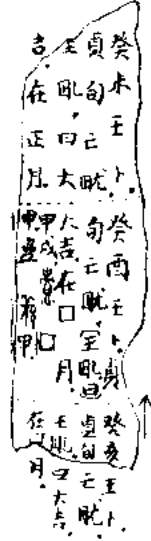 癸未王卜.
貞旬亡畎.
王畎.曰大
吉.在正月.
癸酉王卜.貞
旬亡畎.王畎曰
大吉.在□月.
甲戌 □
甲 甲
癸亥王卜.
貞旬亡畎.
王畎.曰大吉.
在□月.